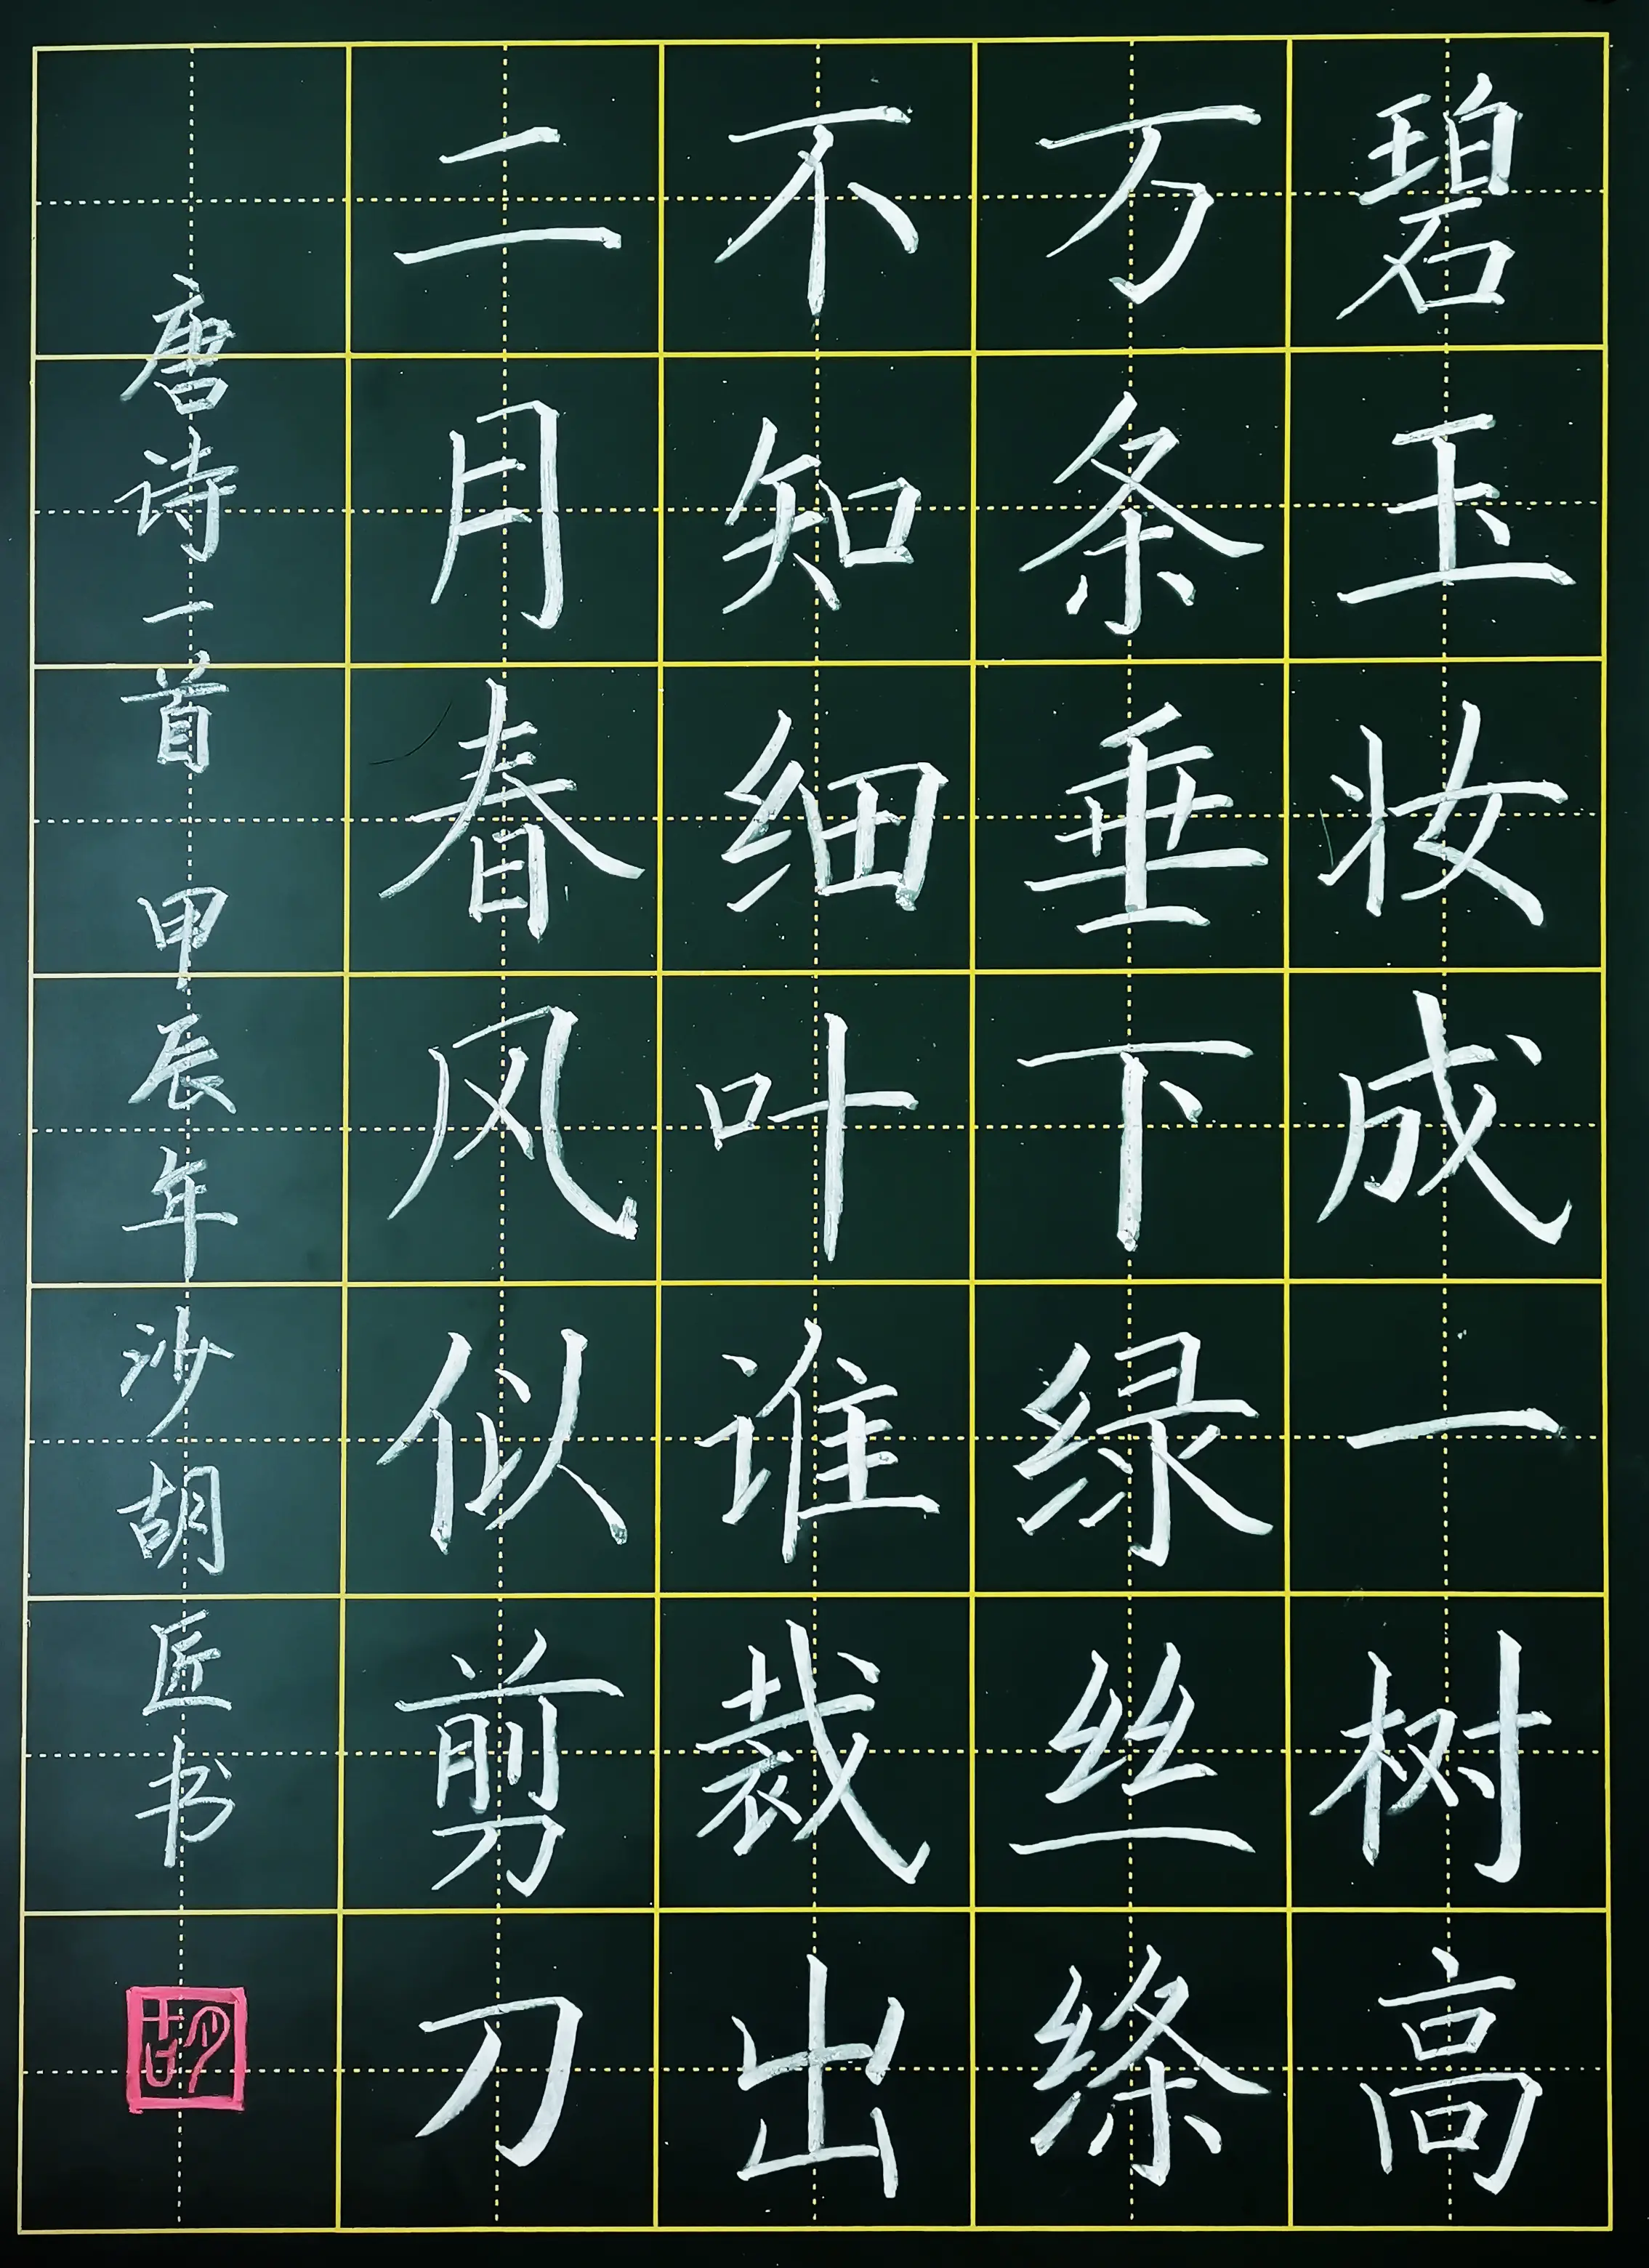 碧玉妆成一树高
万条垂下绿丝绦
不知细叶谁裁出
二月春风似剪刀
唐诗一首 甲辰年 沙胡匠书